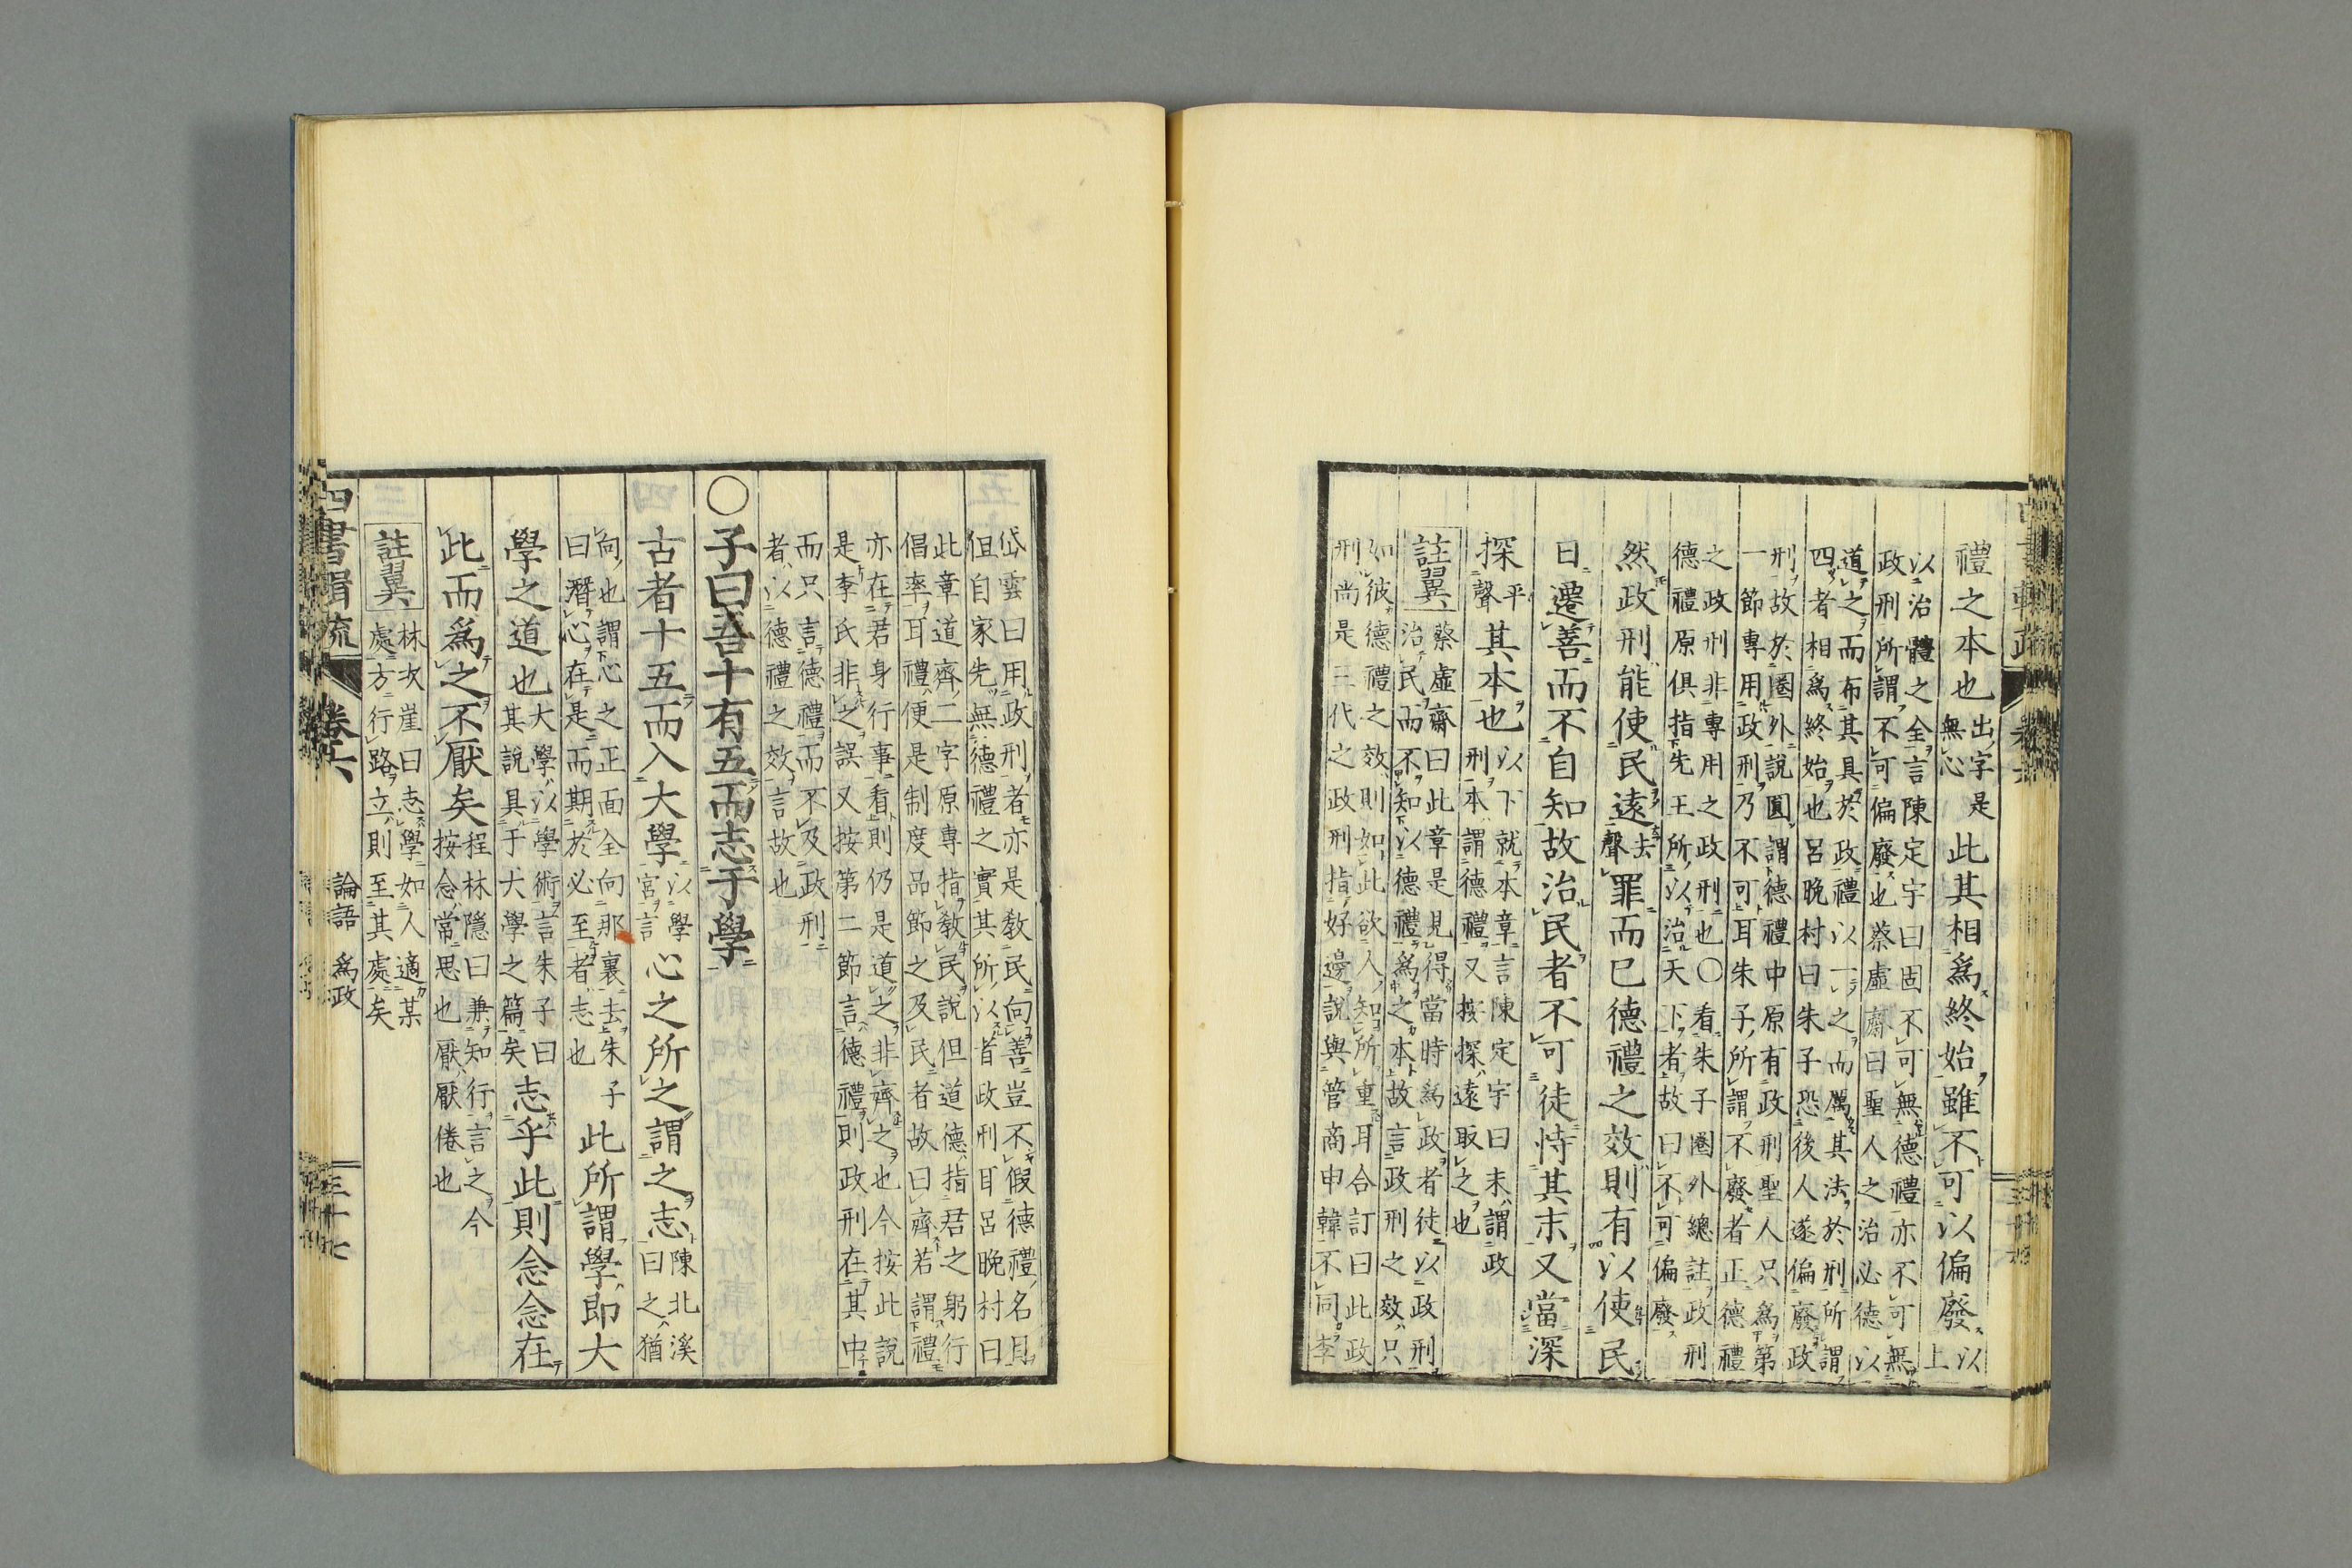 禮之本也出字是無心此其相爲終始雖不可以偏廢以上
以治體之全言陳定宇曰固不可無德禮亦不可無
政刑所謂不可偏廢也蔡虛齋曰聖人之治必德以
道之而布其具於政禮以一之而厲其法於刑所謂
四者相爲終始也呂晚村曰朱子恐後人遂偏廢政
刑故於圈外說圓謂德禮中原有政刑聖人只爲第
一節專用政刑乃不可耳朱子所謂不廢者正德禮
之政刑非專用之政刑也〇看朱子圈外總註政刑
德禮原俱指先王所以治天下者故曰不可偏廢
然政刑能使民遠去聲罪而已德禮之效則有以使民
日遷善而不自知故治民者不可徒恃其末又當深
探平聲其本也以下就本章言陳定宇曰末謂政刑本謂德禮又按探遠取之也
註翼蔡虛齋曰此章是見得當時爲政者徒以政刑
治民而不知以德禮爲之本故言政刑之效只
如彼德禮之效則如此欲人知所重耳合訂曰此政
刑尚是三代之政刑指好邊說與管商申韓不同李
岱雲曰用政刑者亦是敎民向善豈不假德禮名目
但自家先無德禮之實其所以者政刑耳呂晚村曰
此章道齊二字原專指敎民說但道德指君之躬行
倡率耳禮便是制度品節之及民者故曰齊若謂禮
亦在君身行事看則仍是道之非齊之也今按此說
是李氏非之誤又按第二節言德禮則政刑在其中
而只言德禮而不及政刑
者以德禮之效言故也
〇子曰吾十有五而志于學
古者十五而入大學以學宮言心之所之謂之志陳北溪曰之猶
向也謂心之正面全向那裏去朱子
曰潛心在是而期於必至者志也此所謂學即大
學之道也大學以學術言朱子曰其說具于大學之篇矣志乎此則念念在
此而爲之不厭矣程林隱曰兼知行言之今按念常思也厭厭倦也
註翼林次崖曰志學如人適某
處方行路立則至其處矣
四書輯疏 卷六 論語 爲政 三十七